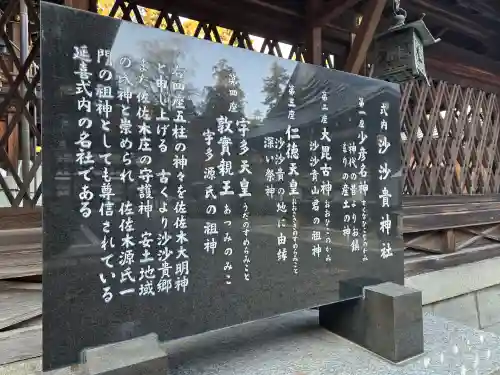 式内 沙沙貴神社
第一座 少彦名神 すくなひこなの神
神代の昔よりお鎮
まりの産土の神
第二座 大毘古神 おおひこのかみ
沙沙貴山君の祖神
第三座 仁徳天皇 おおささぎのすめらみこと
沙沙貴の地に由縁
深い祭神
第四座 宇多天皇 うだのすめらみこと
敦實親王 あつみのみこ
宇多源氏の祖神
右四座五柱の神々を佐佐木大明神
と申し上げる 古くより沙沙貴郷
また佐佐木庄の守護神 安土地域
の氏神と崇められ 佐佐木源氏一
門の祖神としても尊信されている
延喜式内の名社である